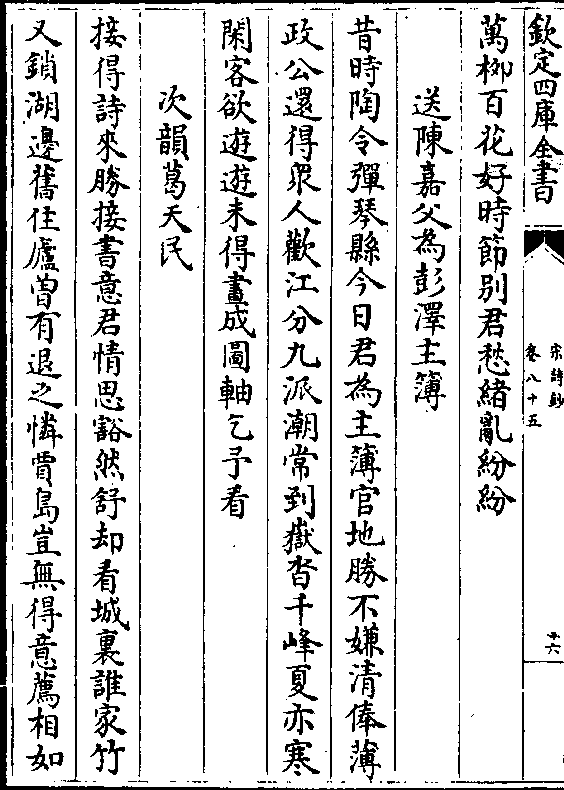 欽定四庫全書
宋詩鈔
卷八十五
十六
萬柳百花好時節别君愁緒亂紛紛
送陳嘉父為彭澤主簿
昔時陶令彈琴縣今日君為主簿官地勝不嫌清俸薄
政公還得衆人歡江分九派潮常到嶽沓千峰夏亦寒
閑客欲遊遊未得畫成圖軸乞予看
次韻葛天民
接得詩來勝接書意君情思豁然舒却看城裏誰家竹
又鎖湖邊舊住廬曽有退之憐賈島豈無得意薦相如